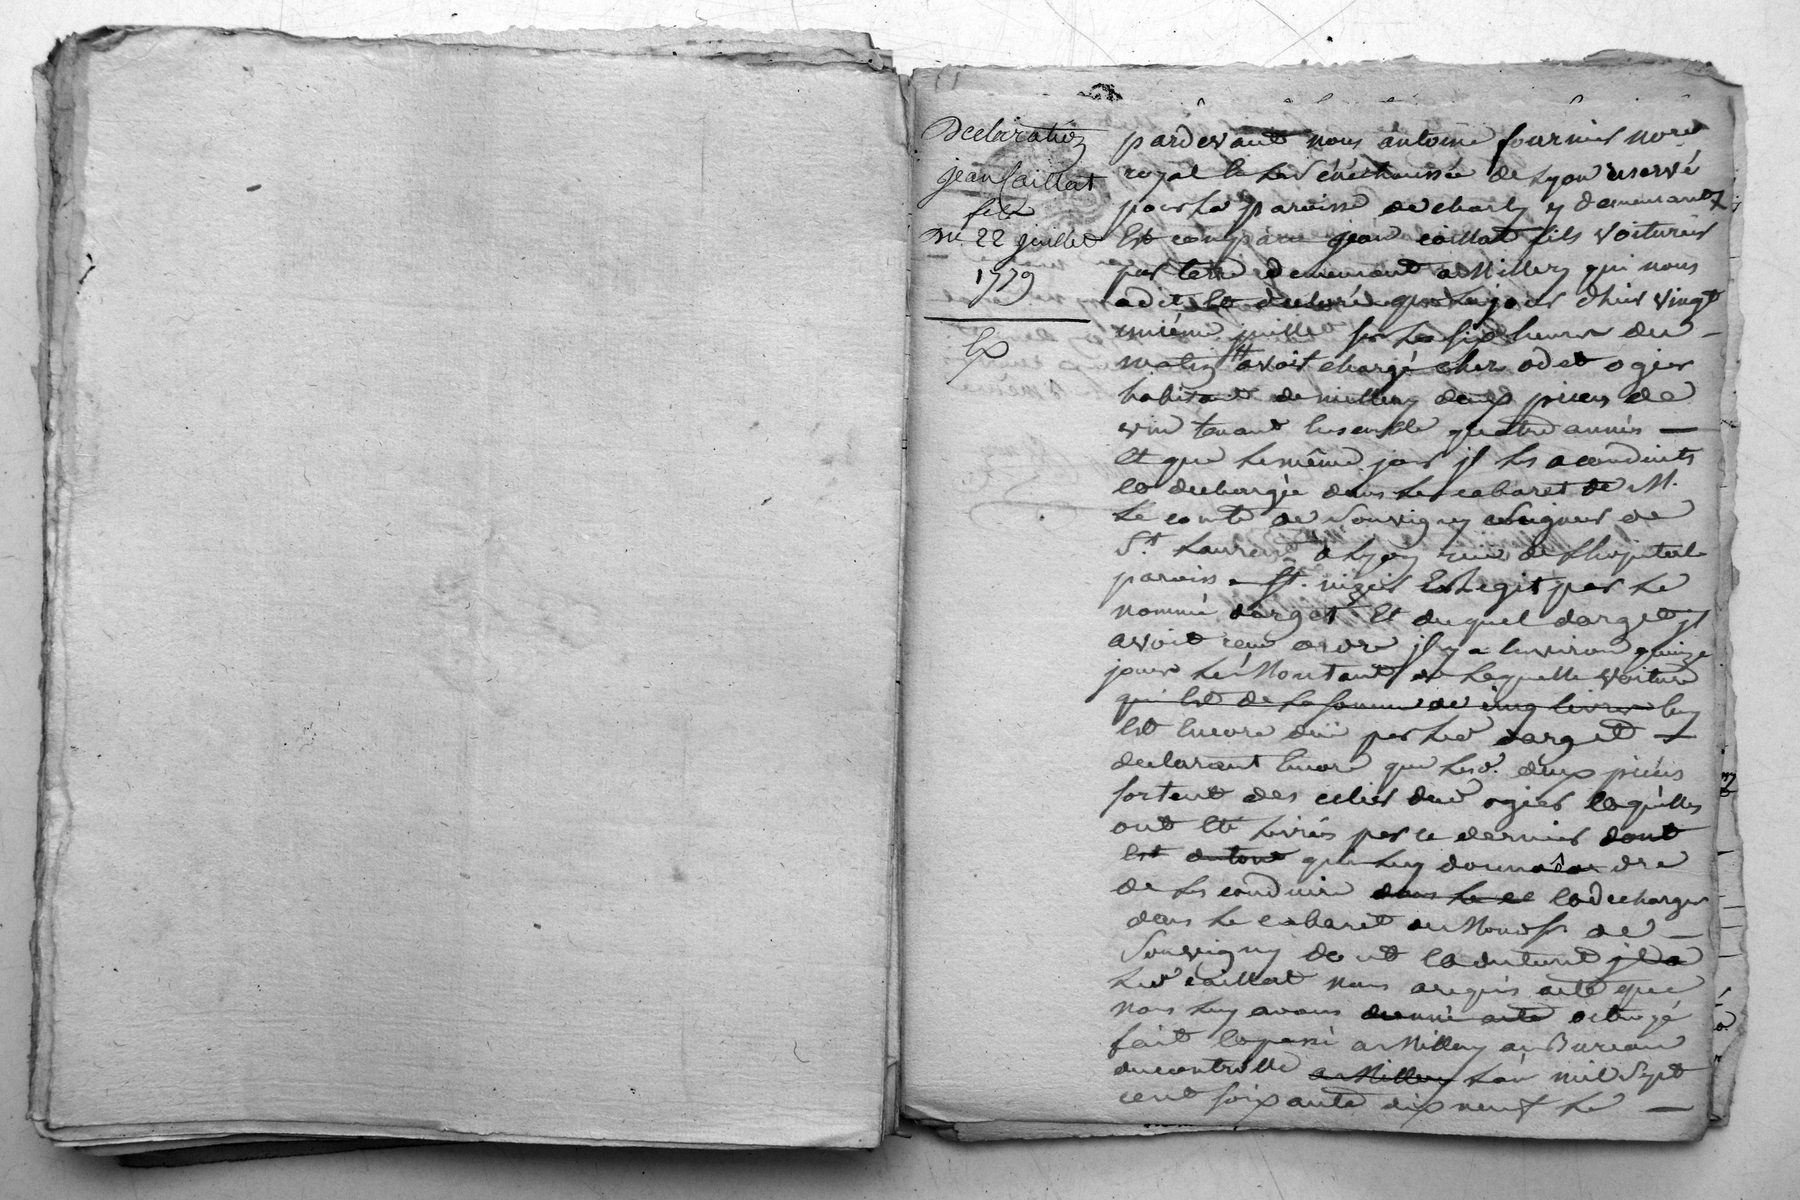 Declaration
jean Caillat
fils
du 22 juillet
1779
pardevant nous antoine fournier nore
royal en la sénéchaussée de Lyon reservé
pour la paroisse de charly y demeurant
Est comparu jean caillat fils voiturier
par terre demeurant a Millery qui nous
a dit et declaré que le jour d'hier vingt
uniéme juillet sur les six heures du
matin il avoit chargé chez odet ogier
habitant de millery deux pieces de
vin tenant ensemble quatre annés
Et que le même jour il les a conduits
et dechargée dans le cabaret de M.
Le comte de Souvigny seigneur de
St. Laurent a Lyon rue de l'hopital
paroisse St. nizier Et regit par le
nommé darget Et duquel darget il
avoit recu ordre il y a environ quinze
jours le Montant de laquelle voiture
qui est de la somme de cinq livres luy
est encore dü par led darget
declarant encore que lesd. deux pieces
sortent des celier dud ogier lequelles
ont eté livrés par ce dernier dont
est du tout qui luy donna ordre
de les conduire dans le et decharger
dans le cabaret du Mond sr de
Souvigny dont et du tout il a
led caillat nous a requis acte que
nous luy avons donné acte octroyé
fait et passé a Millery au Bureau
du controlle a Millery l'an mil sept
cent soixante dix neuf le